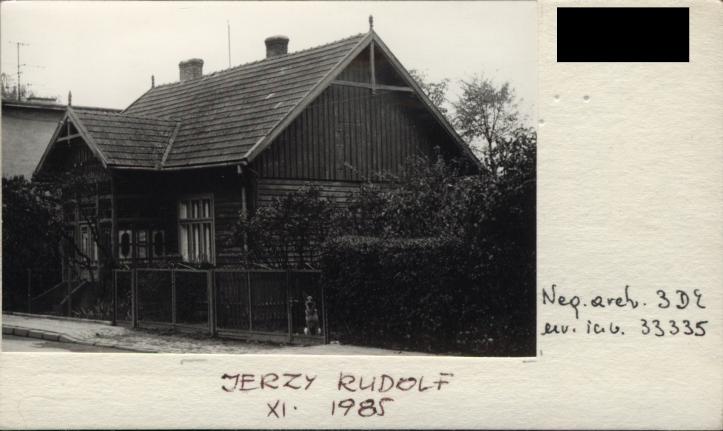 Neg. arch. 3 DE
ew. inb. 33335
JERZY RUDOLF
XI. 1985